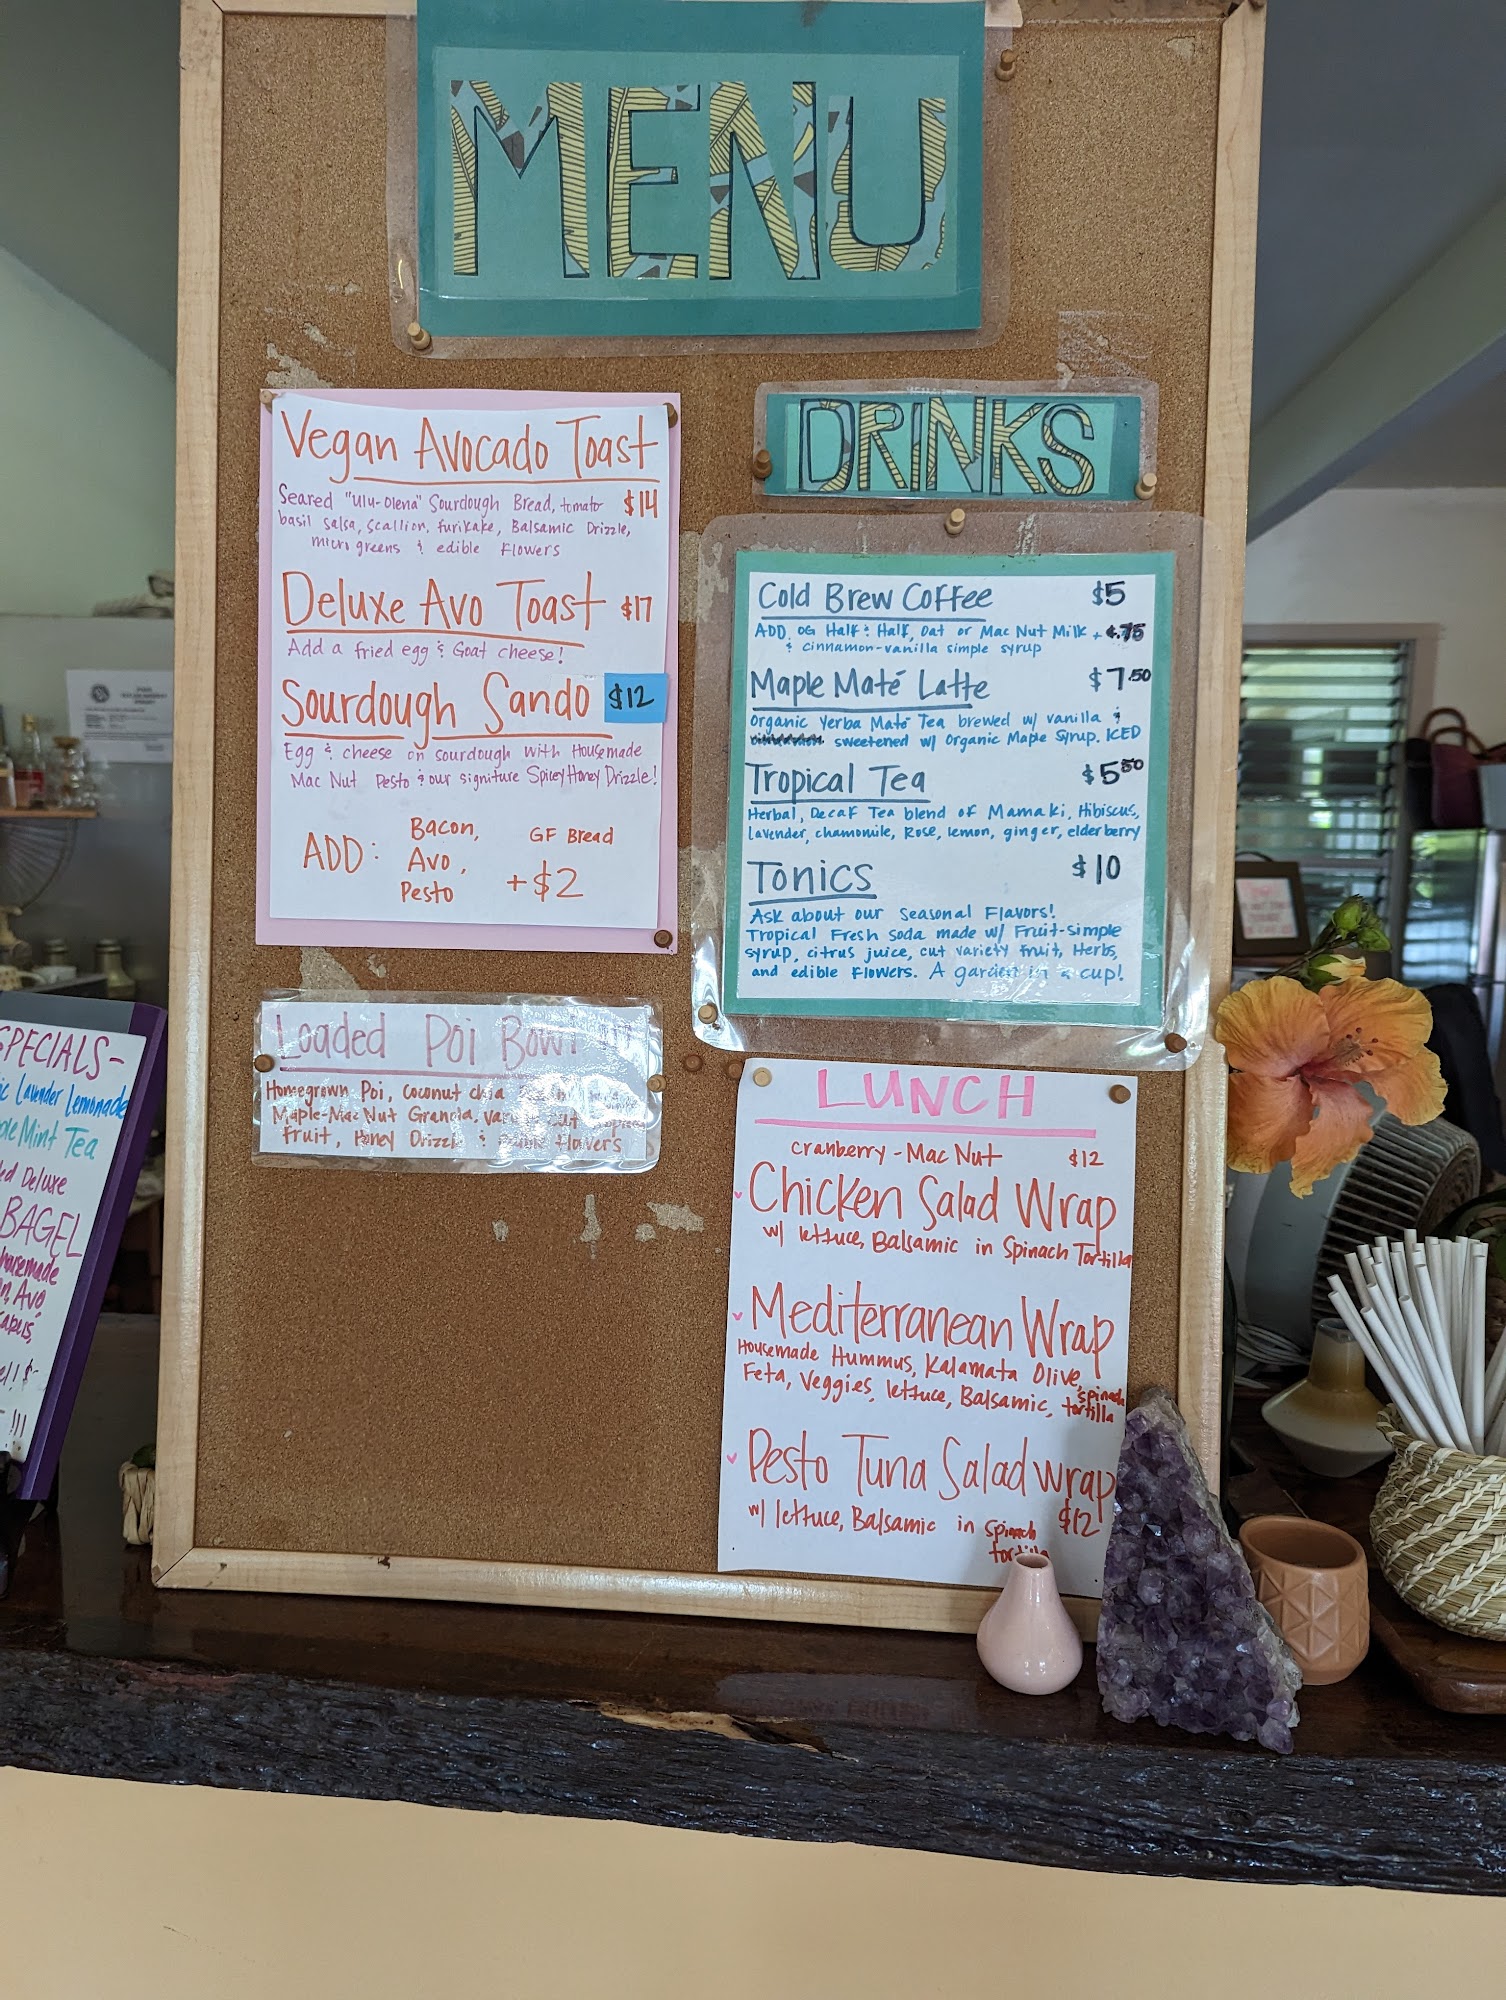 MENU
Vegan Avocado Toast
Seared "Ulu-Olena" Sourdough Bread, tomato $14
basil salsa, scallion, furikake, Balsamic Drizzle,
micro greens & edible Flowers
Deluxe Avo Toast $17
Add a fried egg & Goat cheese!
Sourdough Sando $12
Egg & cheese on sourdough with Housemade
Mac Nut Pesto & our signiture Spicey Honey Drizzle!
ADD: Bacon, GF Bread
Avo,
Pesto +$2
Loaded Poi Bowl
Homegrown Poi, coconut chia
Maple-Mac Nut Granola,
fruit, Honey Drizzle & flowers
DRINKS
Cold Brew Coffee $5
ADD OG Half & Half, Oat or Mac Nut Milk + .75
& cinnamon-vanilla simple syrup
Maple Maté Latte $7.50
Organic Yerba Maté Tea brewed w/ vanilla &
sweetened w/ Organic Maple Syrup. ICED
Tropical Tea $5.50
Herbal, Decaf Tea blend of Mamaki, Hibiscus,
lavender, chamomile, Rose, lemon, ginger, elderberry
Tonics $10
Ask about our Seasonal Flavors!
Tropical Fresh Soda made w/ Fruit-simple
syrup, citrus juice, cut variety fruit, Herbs,
and edible Flowers. A garden in a cup!
LUNCH
cranberry - Mac Nut $12
Chicken Salad Wrap
w/ lettuce, Balsamic in Spinach Tortilla
Mediterranean Wrap
Housemade Hummus, Kalamata Olive,
Feta, Veggies, lettuce, Balsamic, spinach
tortilla
Pesto Tuna Salad wrap
w/ lettuce, Balsamic in spinach $12
tortilla
SPECIALS-
Lavender Lemonade
Mint Tea
Deluxe
BAGEL
housemade
Avo
capers,
!!!